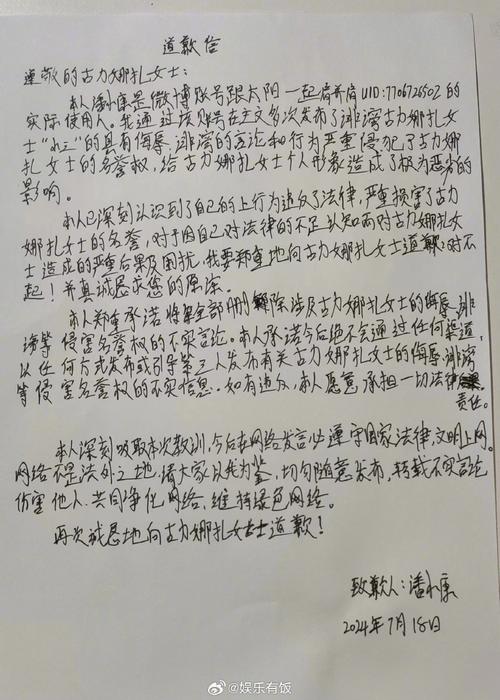 道歉信
尊敬的古力娜扎女士：
本人潘永康是微博账号跟太阳一起肩并肩UID:7706726502的
实际使用人。我通过该账号在主文多次发布了诽谤古力娜扎女
士"小三"的具有侮辱、诽谤的言论和行为严重侵犯了古力娜
扎女士的名誉权，给古力娜扎女士个人形象造成了极为恶劣的
影响。
本人已深刻认识到了自己的上行为违反了法律，严重损害了古力
娜扎女士的名誉，对于因自己对法律的不足认知而对古力娜扎女
士造成的严重后果及困扰，我要郑重地向古力娜扎女士道歉：对不
起！并真诚恳求您的原谅。
本人郑重承诺将全部删除涉及古力娜扎女士的侮辱、诽
谤等侵害名誉权的不实言论。本人承诺今后绝不会通过任何渠道，
以任何方式发布或引导第三人发布有关古力娜扎女士的侮辱、诽谤
等侵害名誉权的不实信息。如有违反，本人愿意承担一切法律
责任。
本人深刻吸取本次教训，今后在网络发言必遵守国家法律，文明上网。
网络不是法外之地，请大家以我为鉴，切勿随意发布，转载不实言论
伤害他人，共同净化网络，维持绿色网络。
再次诚恳地向古力娜扎女士道歉！
致歉人：潘永康
2024年7月18日
@娱乐有饭